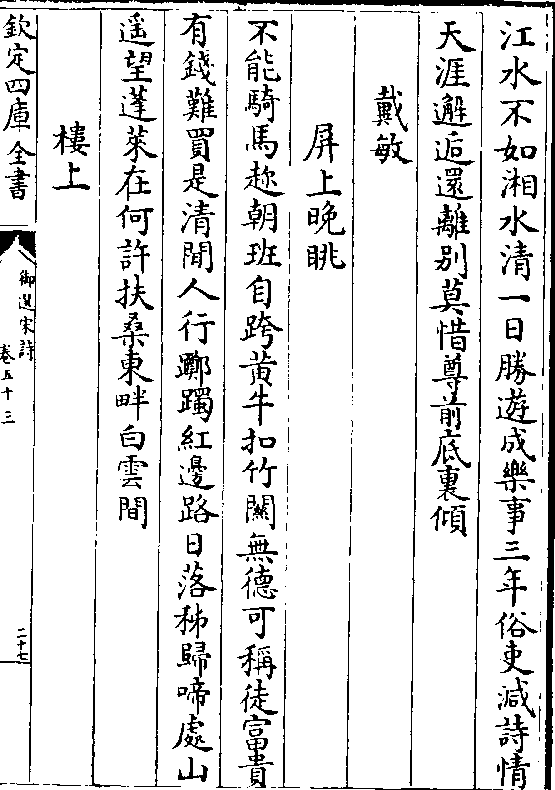 江水不如湘水清一日勝遊成樂事三年俗吏減詩情
天涯邂逅還離别莫惜尊前底裏傾
戴敏
屏上晚眺
不能騎馬趂朝班自跨黄牛扣竹闗無德可稱徒富貴
有錢難買是清閒人行躑躅紅邊路日落秭歸啼處山
遥望蓬萊在何許扶桑東畔白雲間
樓上
欽定四庫全書
御選宋詩
卷五十三
二十七